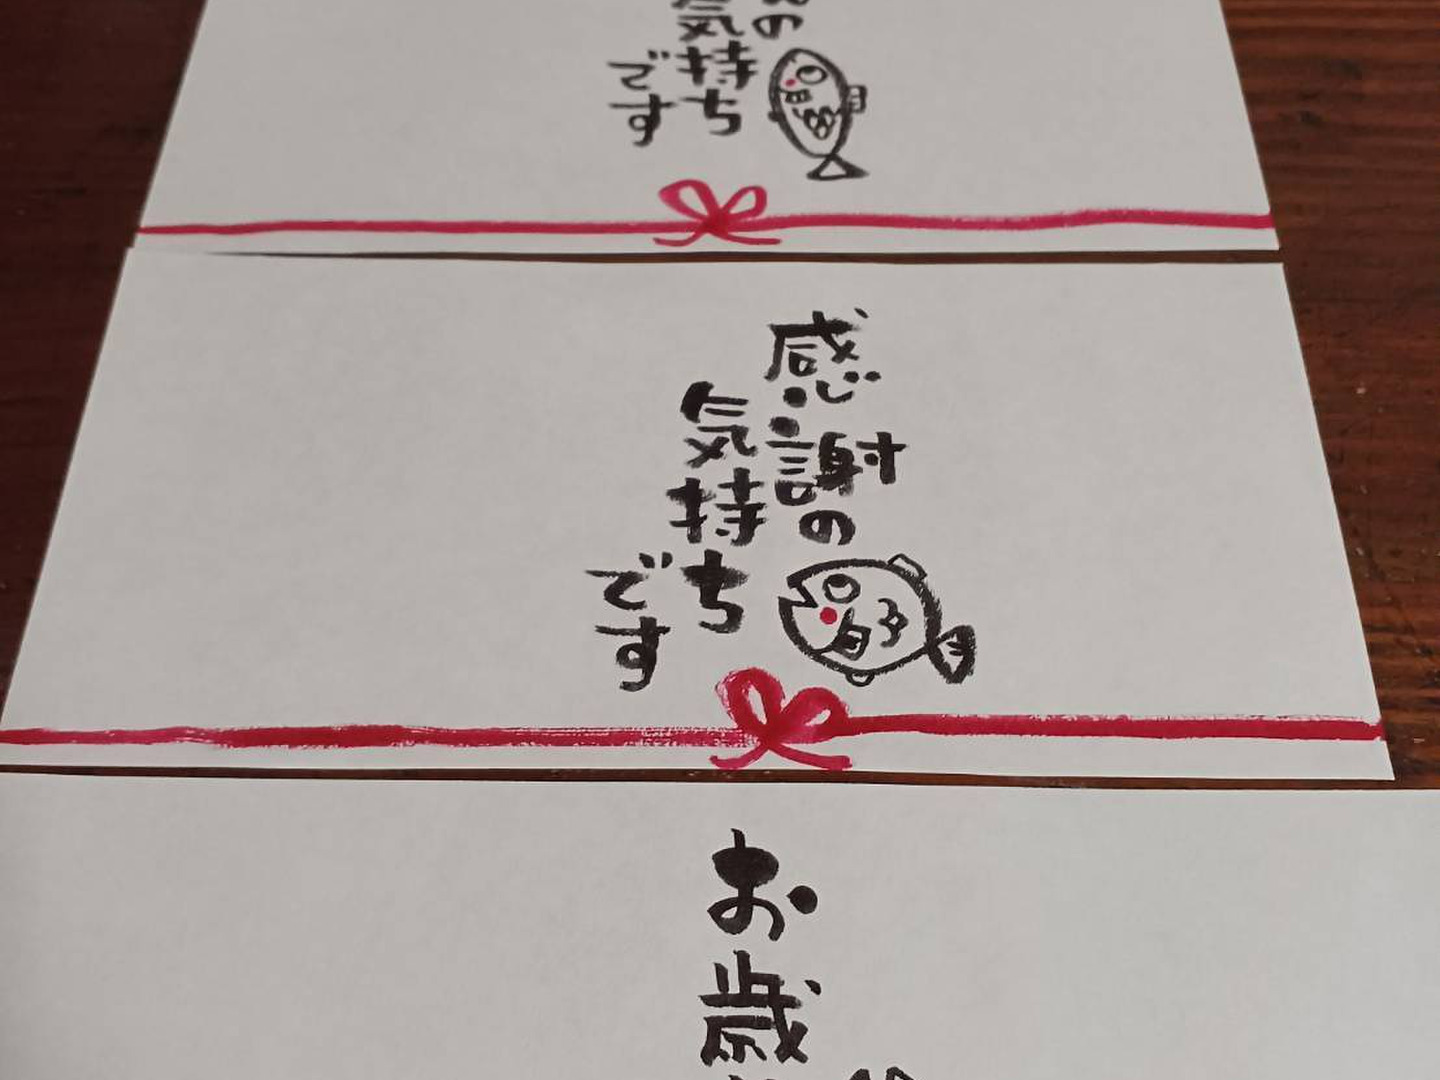 の
気持ち
です
感謝の
気持ち
です
お歳